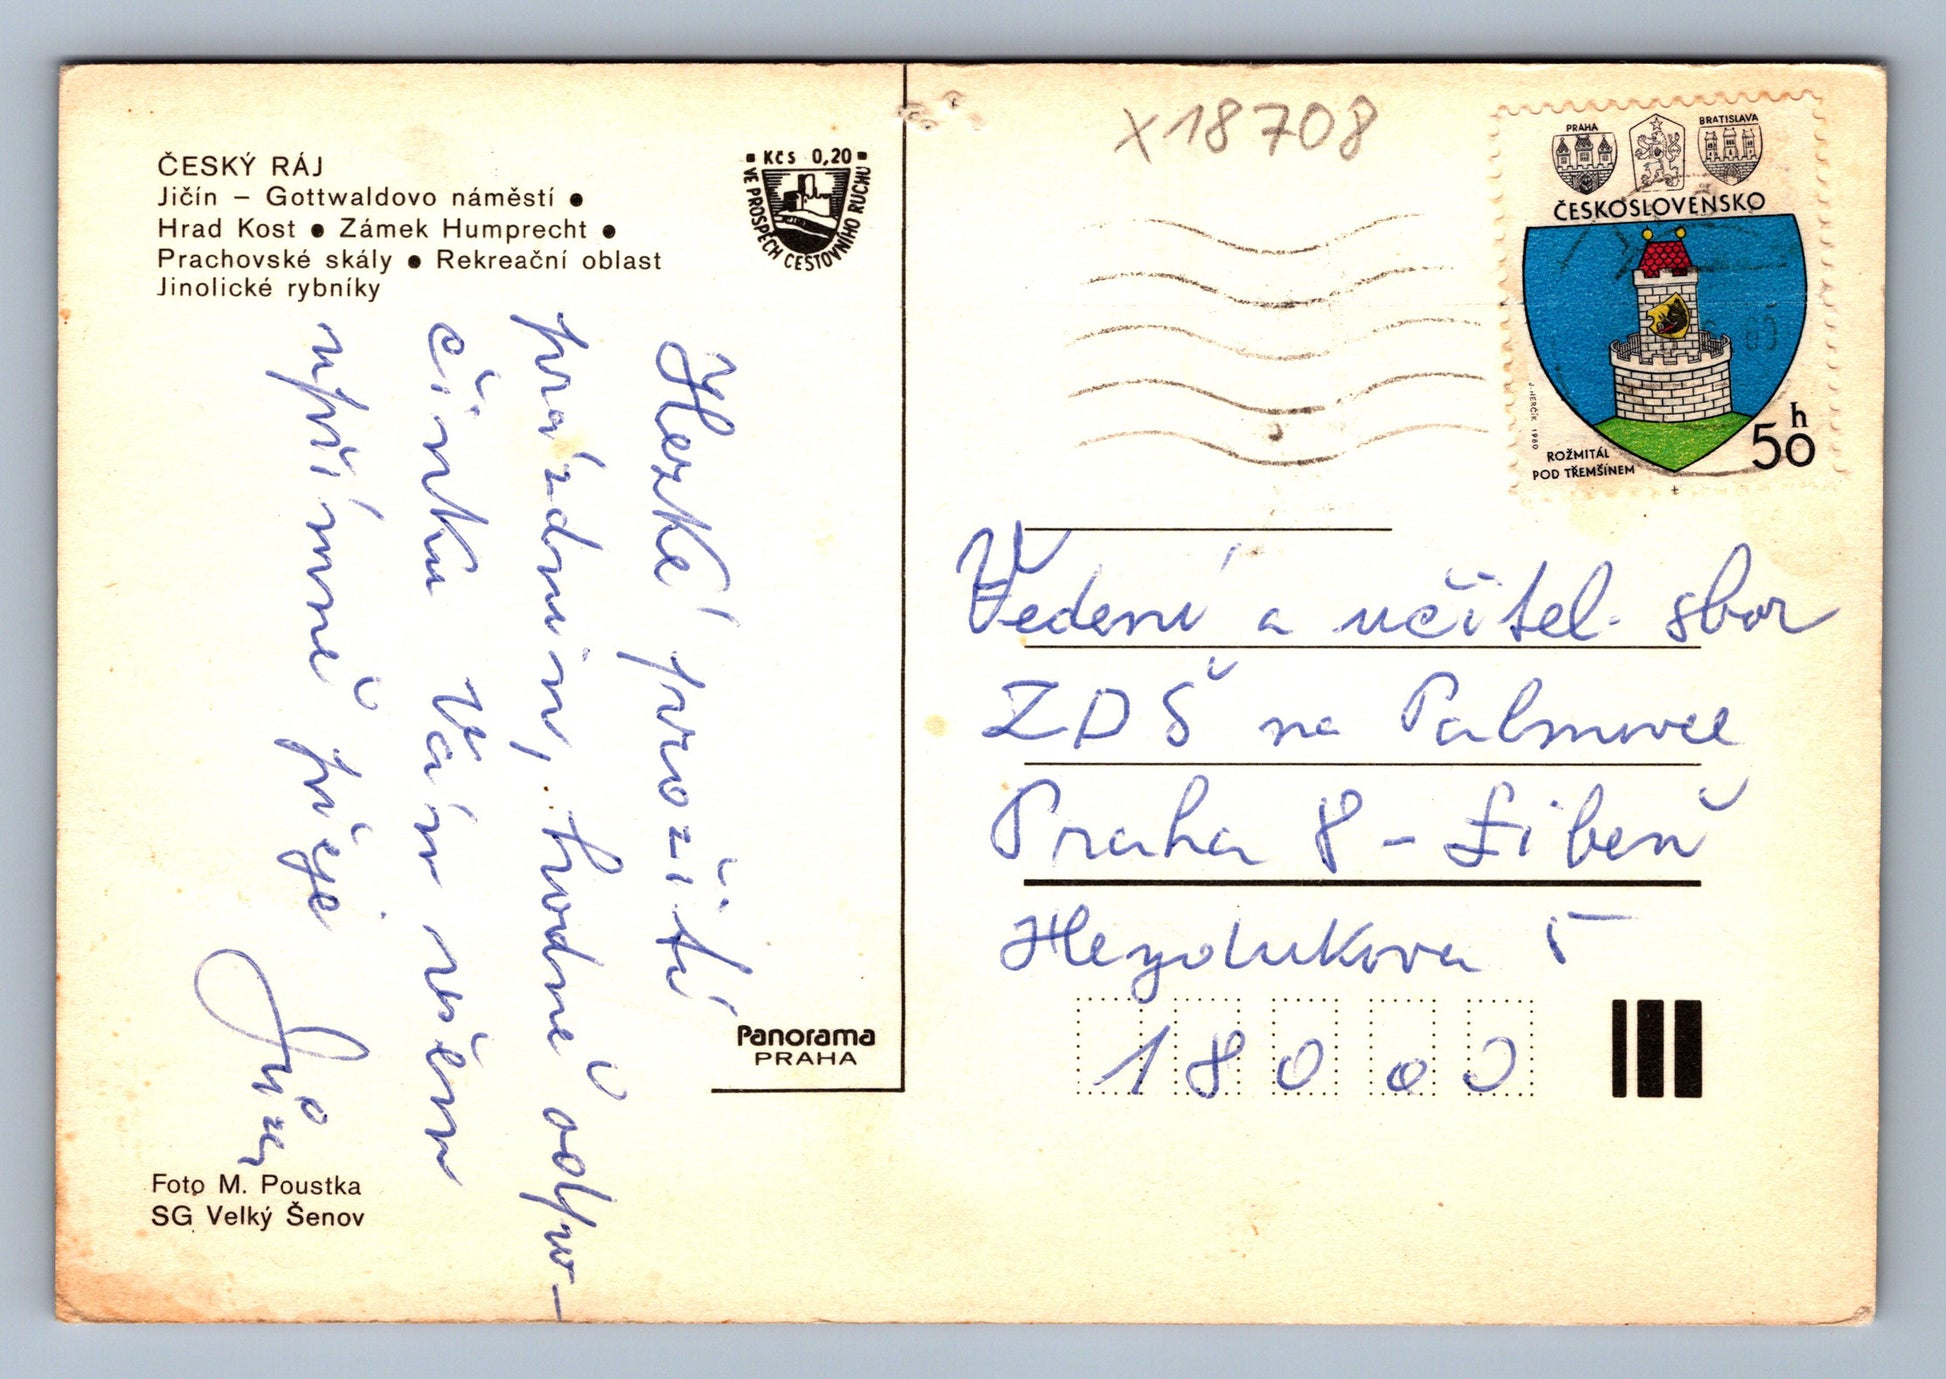 ČESKÝ RÁJ
Jičín – Gottwaldovo náměstí ●
Hrad Kost ● Zámek Humprecht ●
Prachovské skály ● Rekreační oblast
Jinolické rybníky
Kčs 0,20
VE PROSPĚCH CESTOVNÍHO RUCHU
Hezké prožití
prázdnin, hodně odpo-
činku Vám všem
upřímně přeje
Panorama
PRAHA
Foto M. Poustka
SG Velký Šenov
X18708
PRAHA
BRATISLAVA
ČESKOSLOVENSKO
J. HERČÍK 1980
ROŽMITÁL
POD TŘEMŠÍNEM
50 h
Vedení a učitel. sbor
ZDŠ na Palmovce
Praha 8 – Libeň
5
180 00